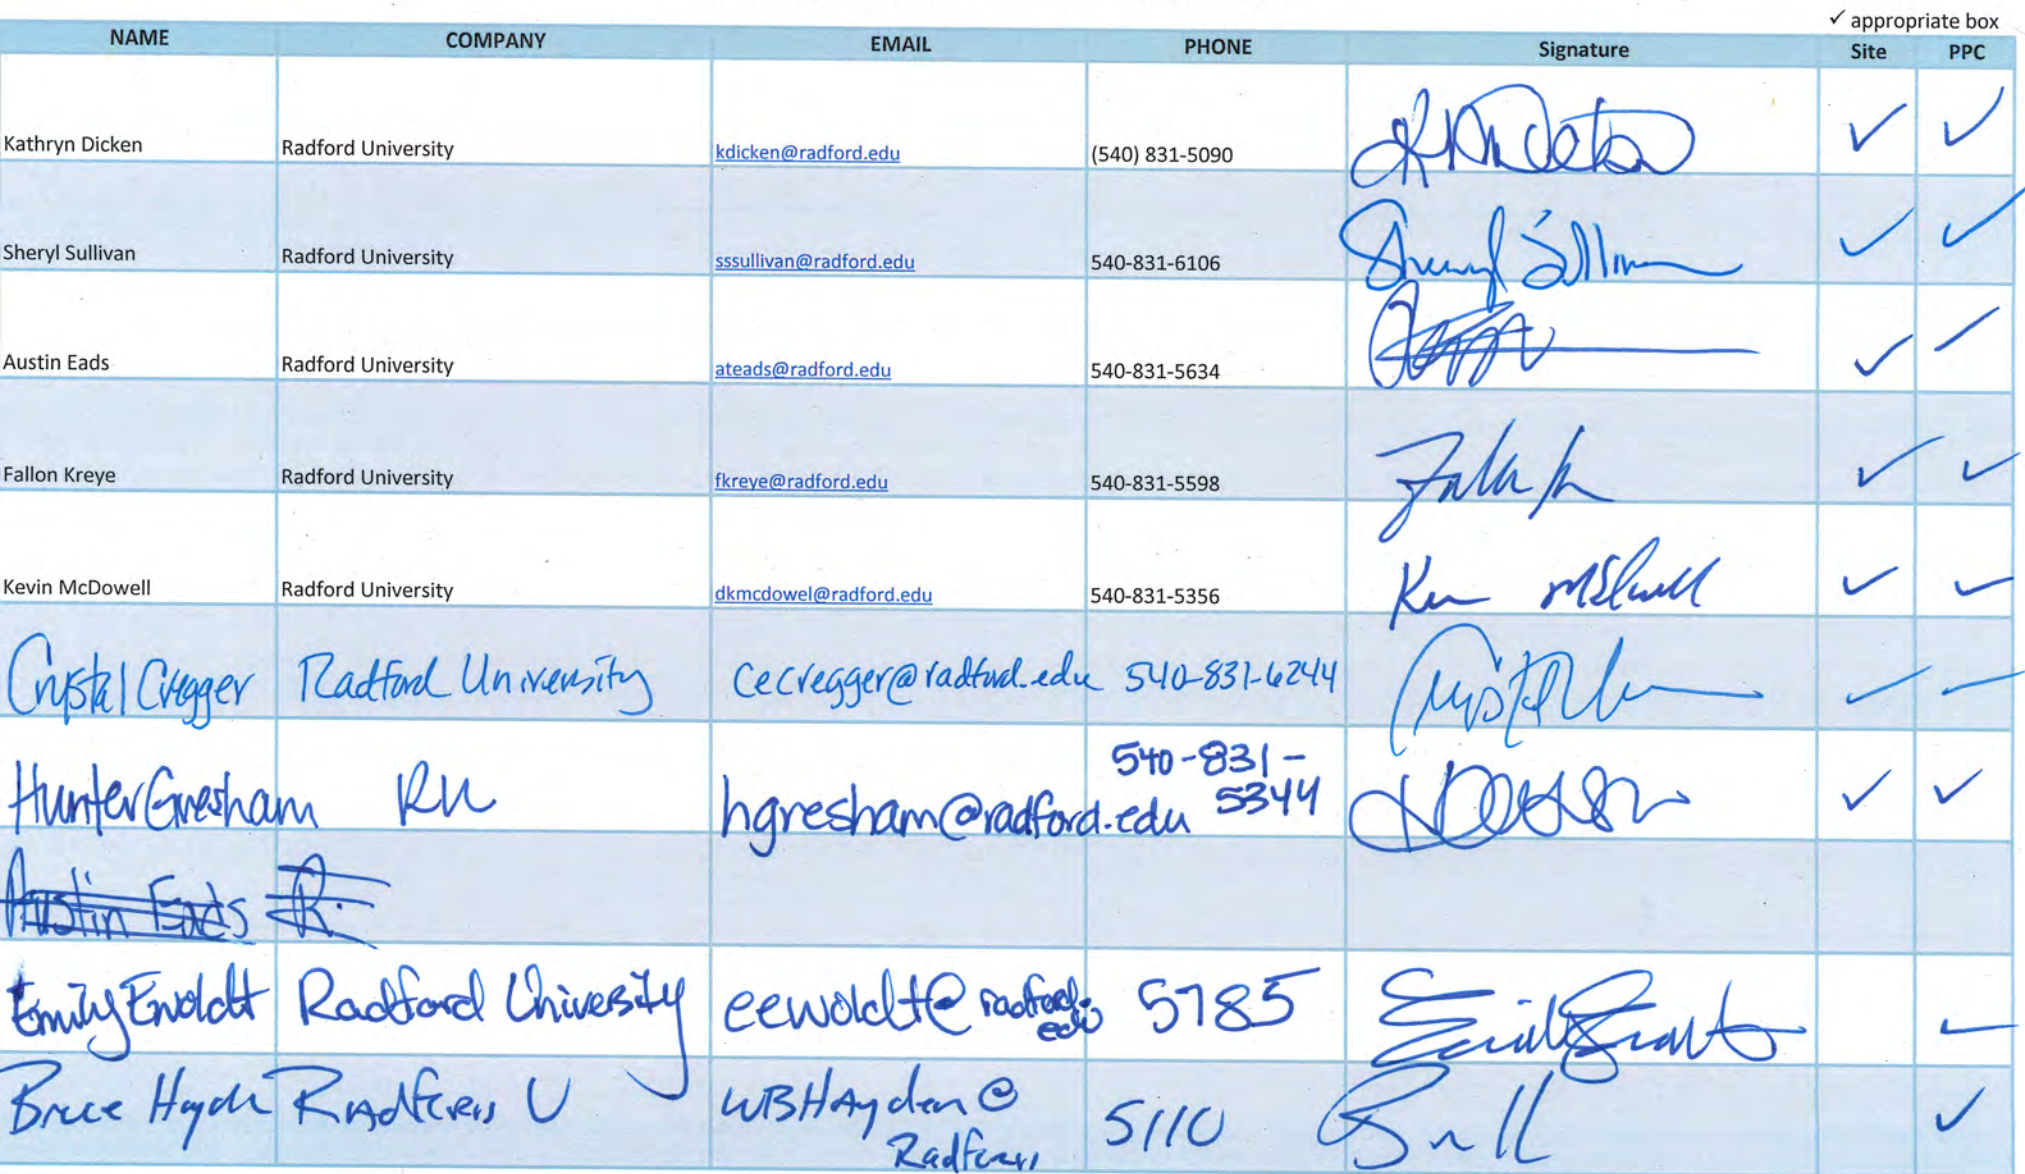 ✓ appropriate box
NAME COMPANY EMAIL PHONE Signature Site PPC
Kathryn Dicken Radford University kdicken@radford.edu (540) 831-5090 ✓ ✓
Sheryl Sullivan Radford University sssullivan@radford.edu 540-831-6106 Sheryl Sullivan ✓ ✓
Austin Eads Radford University ateads@radford.edu 540-831-5634 ✓ ✓
Fallon Kreye Radford University fkreye@radford.edu 540-831-5598 ✓ ✓
Kevin McDowell Radford University dkmcdowel@radford.edu 540-831-5356 ✓ ✓
Crystal Cregger Radford University cecregger@radford.edu 540-831-6244 ✓ ✓
Hunter Gresham RU hgresham@radford.edu 540-831-5344 ✓ ✓
Austin Eads R.
Emily Ewoldt Radford University eewoldt@radford.edu 5785 ✓
Bruce Hayden Radford U WBHayden@Radford 5110 ✓